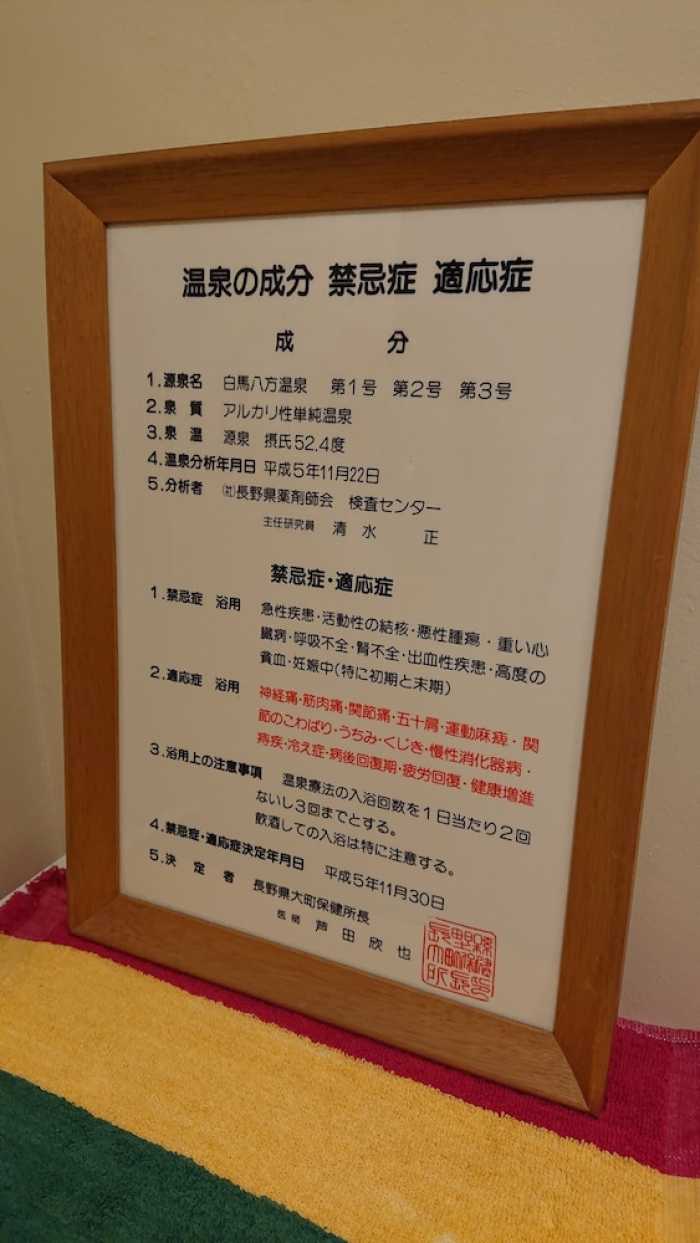 温泉の成分 禁忌症 適応症
成 分
1.源泉名 白馬八方温泉 第1号 第2号 第3号
2.泉 質 アルカリ性単純温泉
3.泉 温 源泉 摂氏52.4度
4.温泉分析年月日 平成5年11月22日
5.分析者 ㈳長野県薬剤師会 検査センター
主任研究員 清 水 正
禁忌症・適応症
1.禁忌症 浴用 急性疾患・活動性の結核・悪性腫瘍・重い心
臓病・呼吸不全・腎不全・出血性疾患・高度の
貧血・妊娠中(特に初期と末期)
2.適応症 浴用 神経痛・筋肉痛・関節痛・五十肩・運動麻痺・関
節のこわばり・うちみ・くじき・慢性消化器病・
痔疾・冷え症・病後回復期・疲労回復・健康増進
3.浴用上の注意事項 温泉療法の入浴回数を1日当たり2回
ないし3回までとする。
飲酒しての入浴は特に注意する。
4.禁忌症・適応症決定年月日 平成5年11月30日
5.決 定 者 長野県大町保健所長
医師 芦 田 欣 也